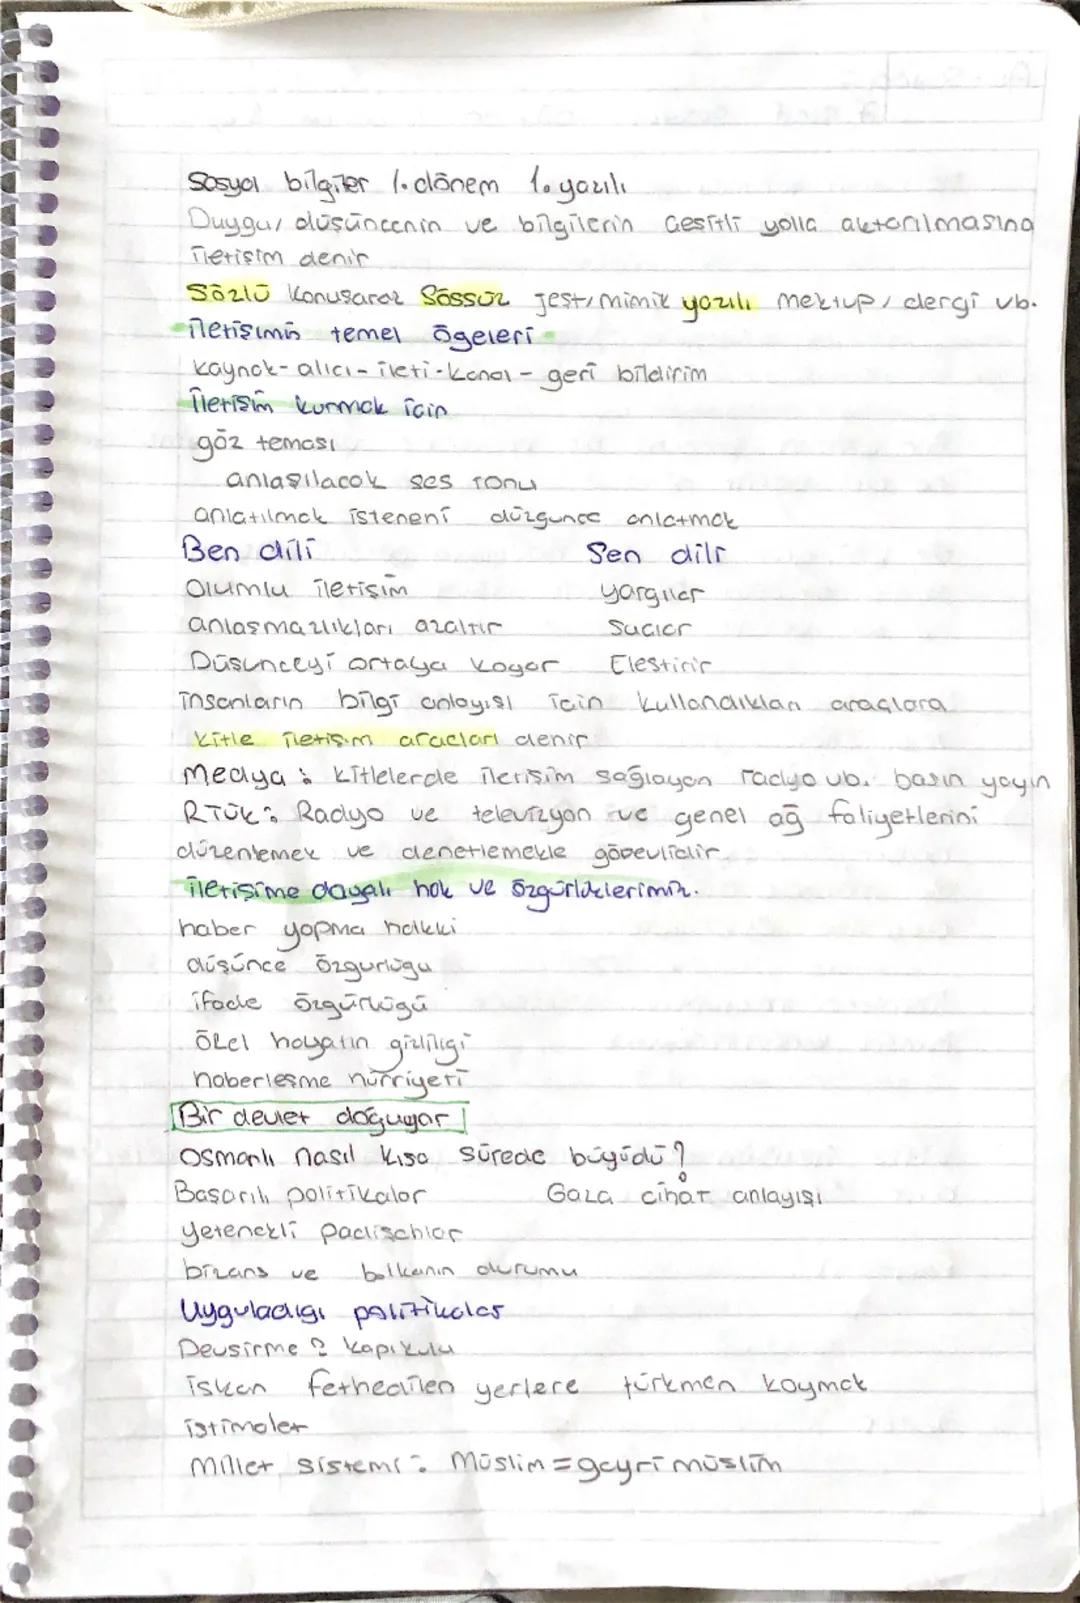 Sosyal bilgiler 1. dönem 1. yazılı
Duygu, düşüncenin ve bilgilerin çeşitli yolla aktarılmasına
iletişim denir
Sözlü konuşarak Sössüz jest, mimik yazılı mektup, dergi vb.
iletişimin temel ögeleri
kaynak - alıcı - ileti - kanal - geri bildirim
İletişim kurmak için
göz teması
anlaşılacak ses tonu
anlatılmak isteneni düzgünce anlatmak
Ben dili Sen dili
Olumlu iletişim yargılar
anlaşmazlıkları azaltır Suçlar
Düşünceyi ortaya koyar Eleştirir
insanların bilgi anlayışı için kullandıkları araçlara
kitle iletişim araçları denir
Medya : kitlelerde iletişim sağlayan radyo vb. basın yayın
RTÜK : Radyo ve televizyon ve genel ağ faliyetlerini
düzenlemek ve denetlemekle görevlidir.
iletişime dayalı hak ve özgürlüklerimiz.
haber yapma hakkı
düşünce özgürlüğü
ifade özgürlüğü
özel hayatın gizliliği
haberleşme hürriyeti
Bir devlet doğuyor
Osmanlı nasıl kısa sürede büyüdü?
Başarılı politikalar Gaza cihat anlayışı
yetenekli padişahlar
bizans ve balkanın durumu
Uyguladığı politikalar
Devşirme ? kapıkulu
iskan fethedilen yerlere türkmen koymak
istimalet
Millet sistemi : Müslim = gayri müslim